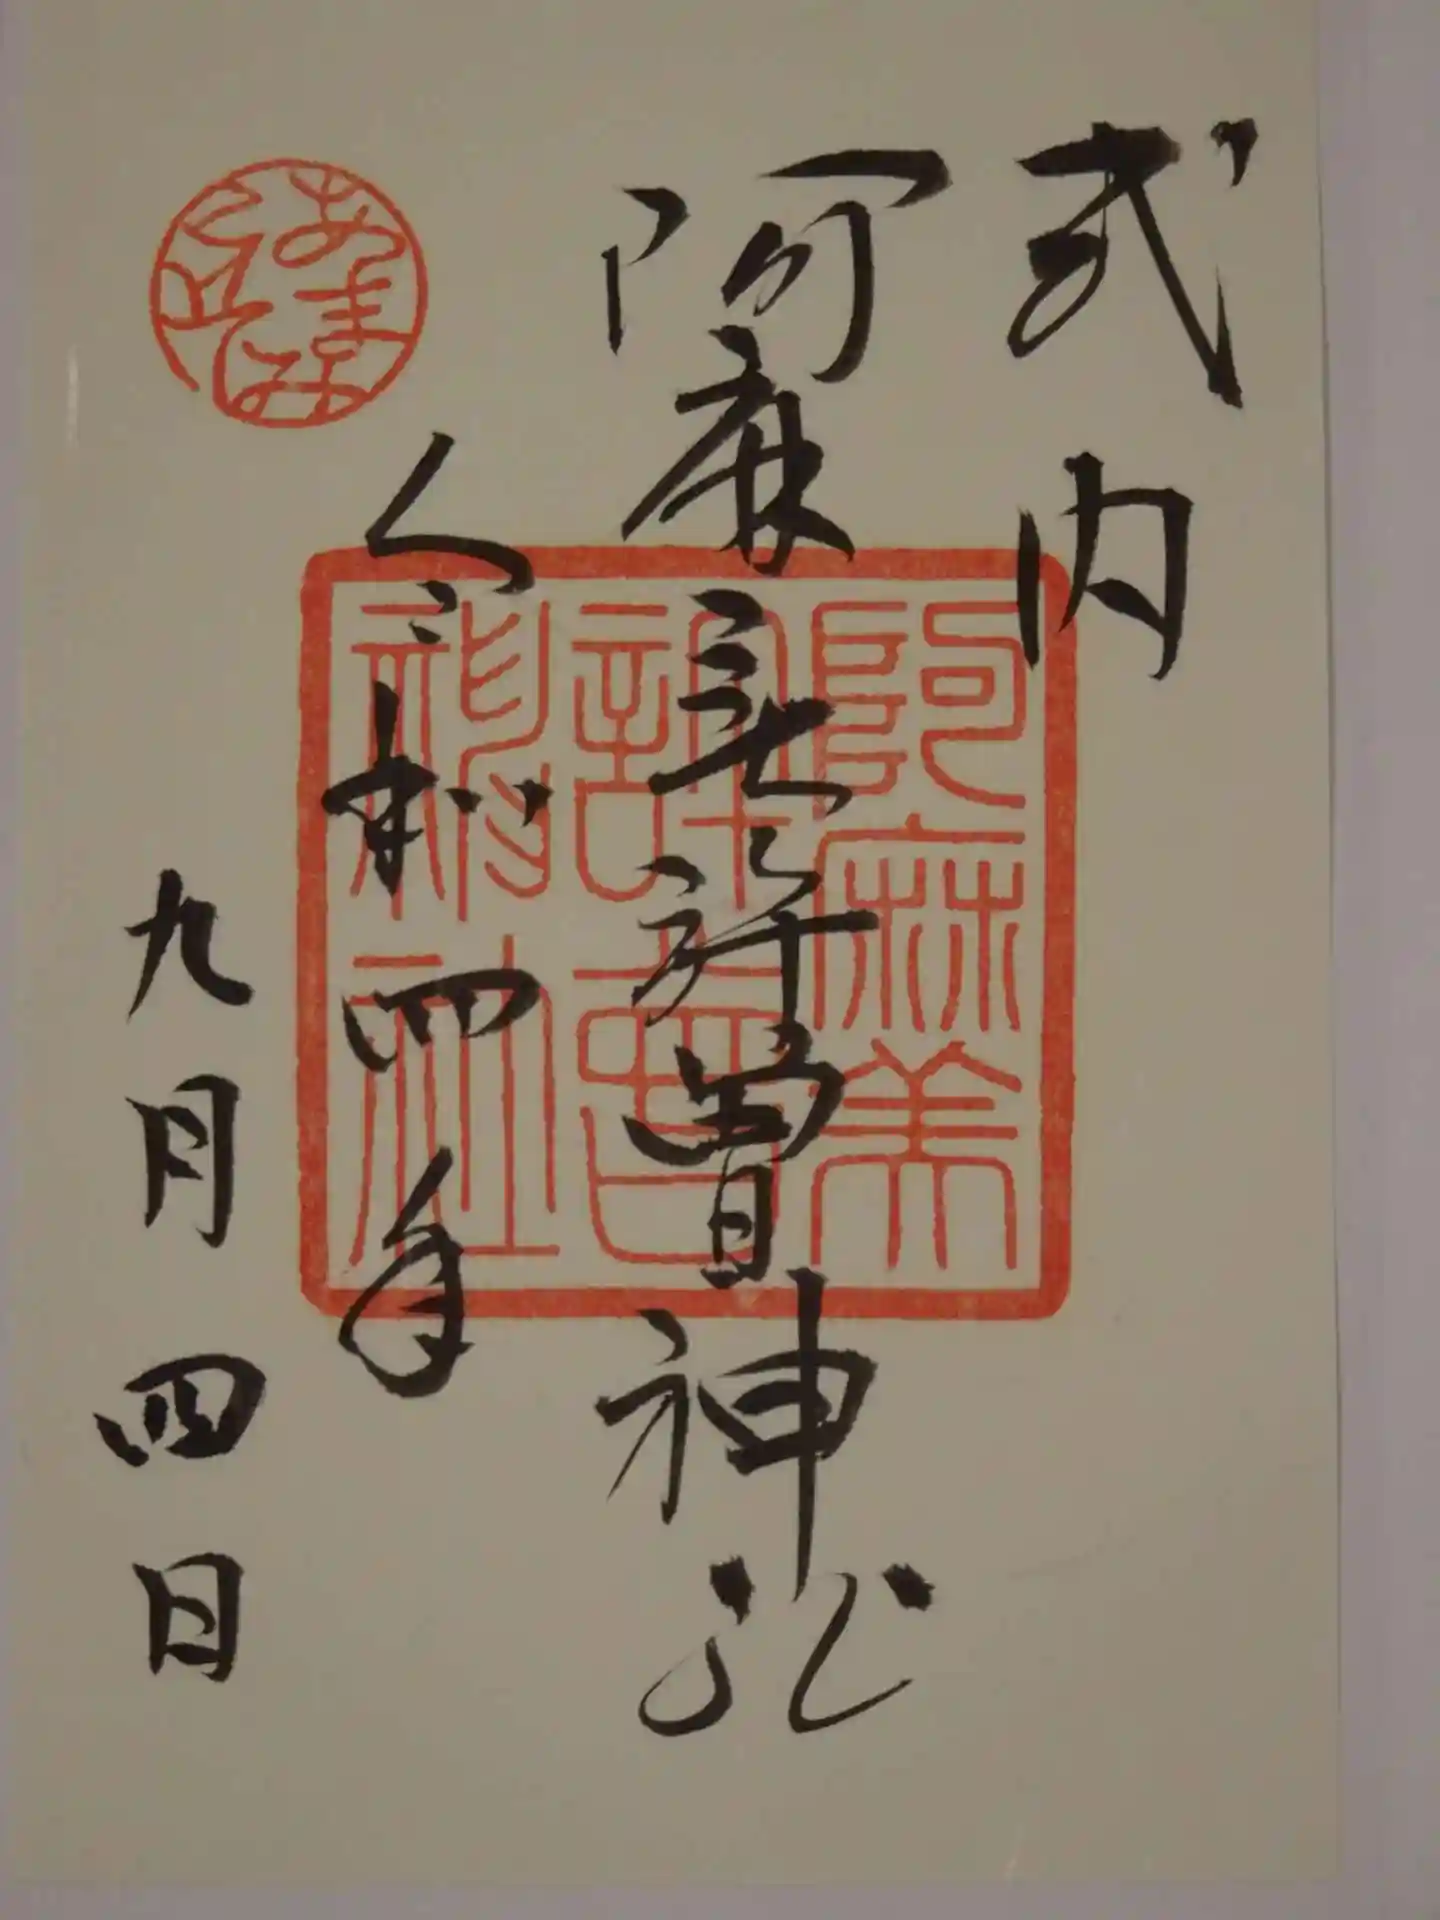 式内
阿麻美許曽神社
令和四年
九月四日
阿麻美
許曽
神社
あまみ